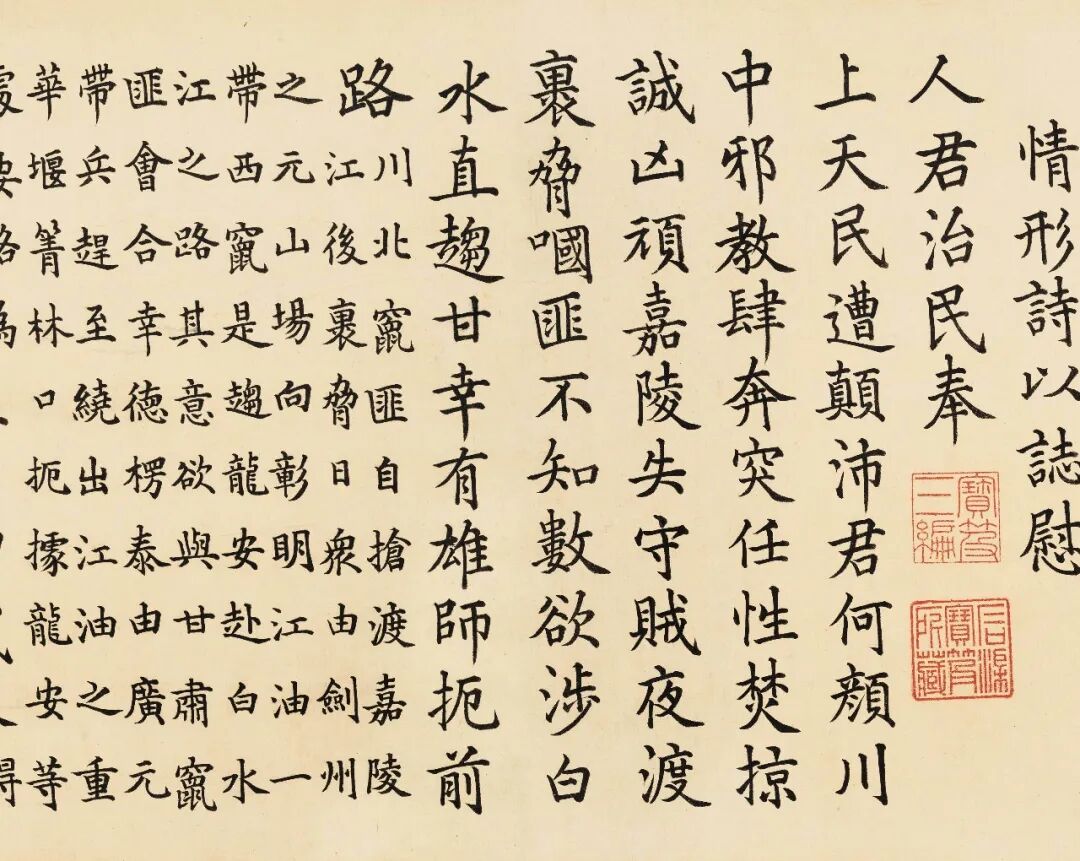 情形詩以誌慰
人君治民奉
寶笈三編
石渠寶笈所藏
上天民遭顛沛君何顏川
中邪教肆奔突任性焚掠
誠凶頑嘉陵失守賊夜渡
裹脅嘓匪不知數欲涉白
水直趨甘幸有雄師扼前
路
川北竄匪自搶渡嘉陵
江後裹脅日衆由劍州
之元山場向彰明江油一
帶西竄是趨龍安赴白水
江之路其意欲與甘肅竄
匪會合幸德楞泰由廣元
帶兵趕至繞出江油之重
華堰箐林口扼據龍安等